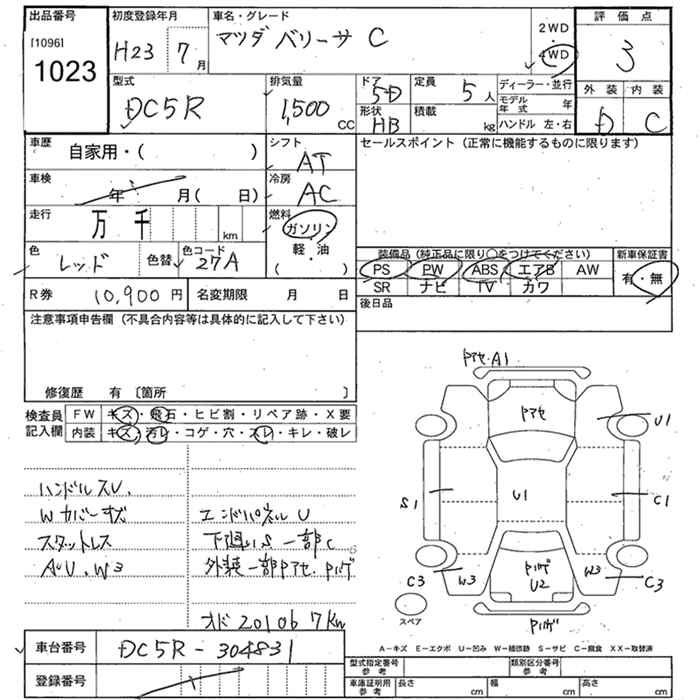 出品番号 初度登録年月 車名・グレード 2WD 評価点
[1096] H23 7月 マツダ ベリーサ C ・ 3
1023 4WD
型式 排気量 ドア 定員 ディーラー・並行 外装 内装
DC5R 1,500 CC 5D 5人 モデル年式 年 D C
形状 積載 ハンドル 左・右
HB kg
車歴 自家用・( ) シフト セールスポイント (正常に機能するものに限ります)
AT
車検 年 月( 日) 冷房
AC
走行 万 千 km 燃料
ガソリン
色 レッド 色替 色コード 27A 軽・油 装備品 (純正品に限り○をつけてください) 新車保証書
( ) PS PW ABS エアB AW 有・無
R券 10,900円 名変期限 月 日 SR ナビ TV カワ
注意事項申告欄 (不具合内容等は具体的に記入して下さい) 後日品
修復歴 有 〔箇所 〕
検査員 FW キズ・飛石・ヒビ割・リペア跡・X要
記入欄 内装 キズ・汚レ・コゲ・穴・スレ・キレ・破レ
ハンドルスレ.
Wカバーキズ エンドパネルU
スタットレス 下廻りS 一部C
AU.W3 外装一部アセ.ハゲ
オド 20106 7km
アセ.A1
アセ
U1
S1 U1 C1
C3 W3 ハゲ U2 W3 C3
スペア ハゲ
A−キズ E−エクボ U−凹み W−補修跡 S−サビ C−腐食 XX−取替済
車台番号 DC5R-304831
登録番号
型式指定番号 参考 類別区分番号 参考
車庫証明用 参考 長さ cm 幅 cm 高さ cm